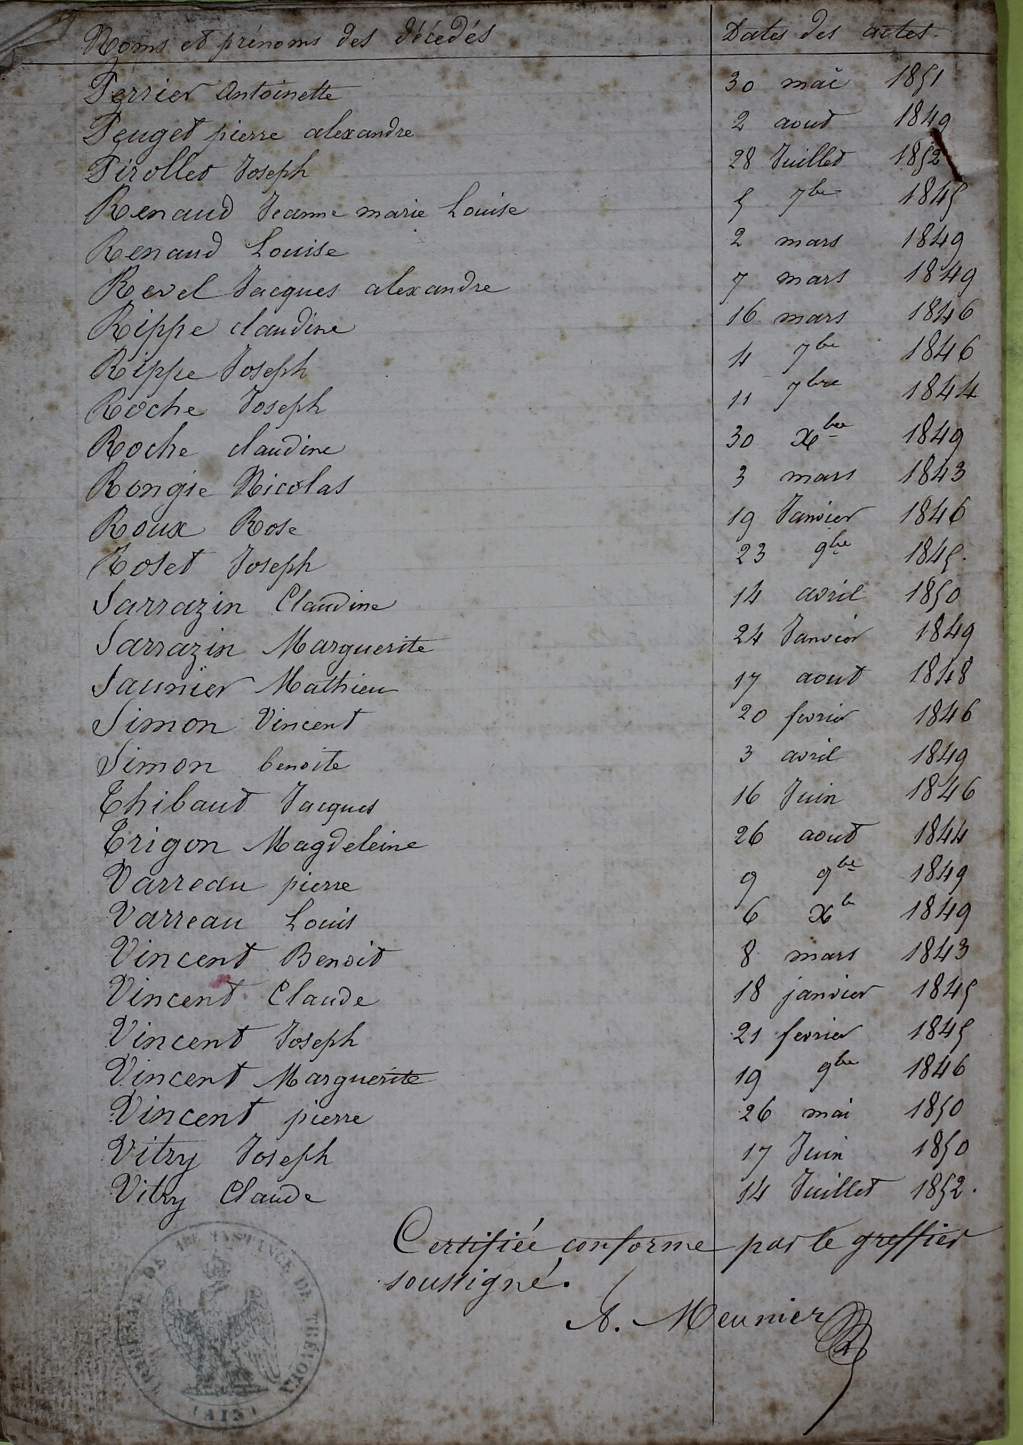 Noms et prénoms des décédés Dates des actes
Perrier Antoinette 30 mai 1851
Peuget pierre alexandre 2 aout 1849
Pirollet Joseph 28 Juillet 1852
Renaud Jeanne marie Louise 5 7bre 1845
Renaud Louise 2 mars 1849
Revel Jacques alexandre 7 mars 1849
Rippe claudine 16 mars 1846
Rippe Joseph 4 7bre 1846
Roche Joseph 11 7bre 1844
Roche claudine 30 Xbre 1849
Rongie Nicolas 3 mars 1843
Roux Rose 19 Janvier 1846
Roset Joseph 23 9bre 1845.
Sarrazin Claudine 14 avril 1850
Sarrazin Marguerite 24 Janvier 1849
Saunier Mathieu 17 aout 1848
Simon Vincent 20 fevrier 1846
Simon benoite 3 avril 1849
Thibaut Jacques 16 Juin 1846
Trigon Magdeleine 26 aout 1844
Varreau pierre 9 9bre 1849
Varreau Louis 6 Xb 1849
Vincent Benoit 8 mars 1843
Vincent Claude 18 janvier 1845
Vincent Joseph 21 fevrier 1845
Vincent Marguerite 19 9bre 1846
Vincent pierre 26 mai 1850
Vitry Joseph 17 Juin 1850
Vitry Claude 14 Juillet 1852.
Certifiée conforme par le greffier
soussigné.
A. Meunier
TRIBUNAL DE 1ERE INSTANCE DE TREVOUX
(AIN)